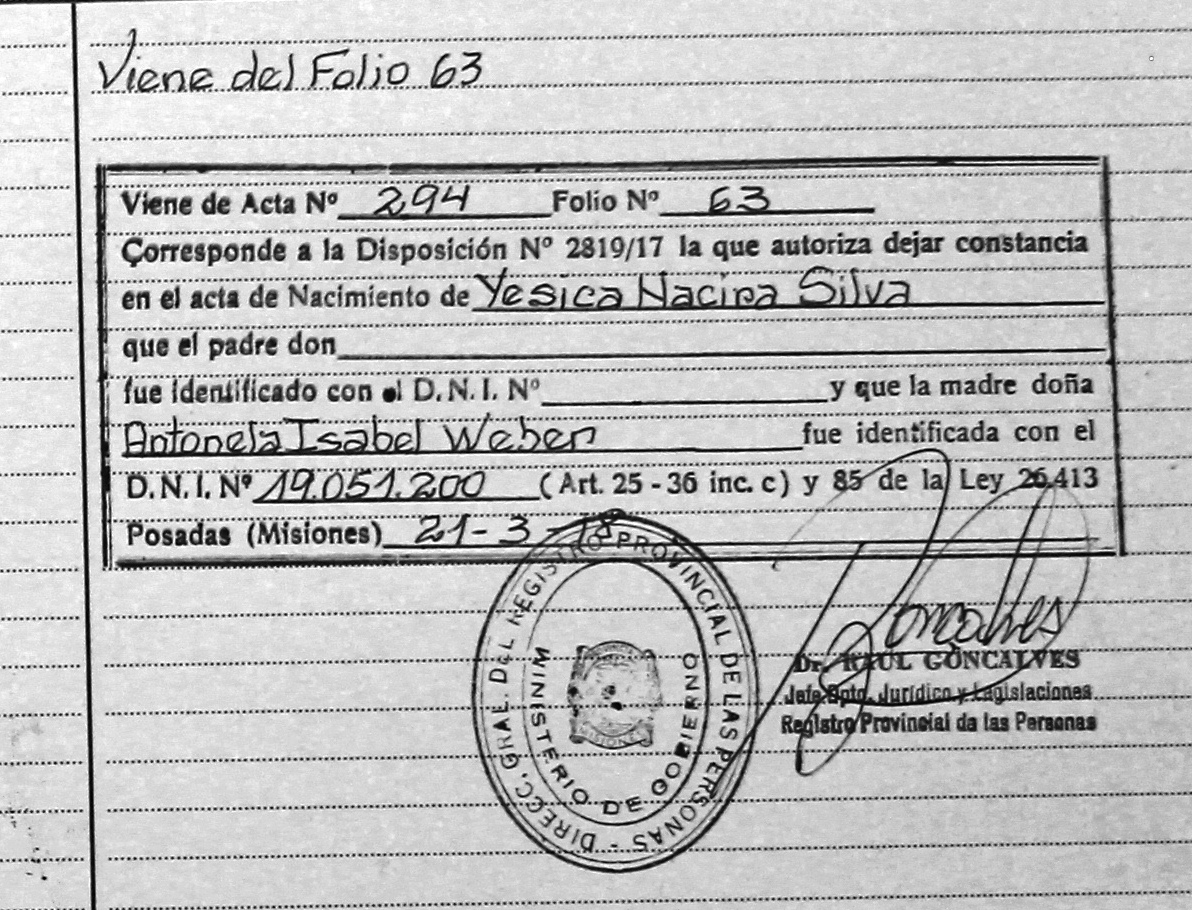 Viene del Folio 63
Viene de Acta Nº 294 Folio Nº 63
Corresponde a la Disposición Nº 2819/17 la que autoriza dejar constancia
en el acta de Nacimiento de Yesica Nacira Silva
que el padre don
fue identificado con el D.N.I. Nº y que la madre doña
Antonela Isabel Weber fue identificada con el
D.N.I. Nº 19.051.200 (Art. 25 - 36 inc. c) y 85 de la Ley 26.413
Posadas (Misiones) 21-3-18
DIRECC. GRAL. DEL REGISTRO PROVINCIAL DE LAS PERSONAS -
MINISTERIO DE GOBIERNO
MISIONES
Goncalves
Dr. RAUL GONCALVES
Jefe Dpto. Jurídico y Legislaciones
Registro Provincial de las Personas